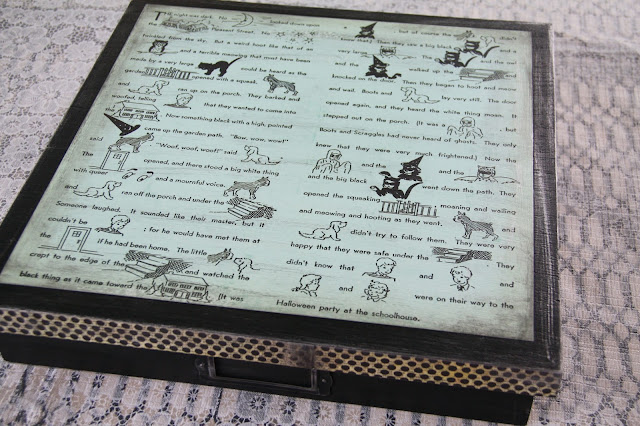 The night was dark. No
looked down upon
Pleasant Street. No
twinkled from the
. But a weird hoot like that of an
and a terrible meow that must have been
made by a very large
were heard as the
garden
with a squeak,
and
ran out on the porch. They barked and
woofed, telling
that they wanted to come into
. Now something black with a high, pointed
came up the garden path. "Bow, wow, wow!"
said
. "Woof, woof, woof!" said
The
opened, and there stood a big white thing
with queer
and a mournful voice.
and
ran off the porch and under the
Someone laughed. It sounded like their master, but it
couldn't be
; for he would have met them at
the
if he had been home. The little
crept to the edge of the
and watched the
black thing as it came toward the
. (It was
, but of course the
didn't
know that.) Then they saw a big black
and a
very large
. The
and the
and the owl
walked up the
and
knocked on the
. Then they began to hoot and meow
and wail. Boots and
lay very still. The door
opened again, and they heard the white thing moan. It
stepped out on the porch. (It was
, but
Boots and Scraggles had never heard of ghosts. They only
knew that they were very much frightened.) Now the
and the
and the
and the big black
went down the path. They
opened the squeaking
, moaning and wailing
and meowing and hooting as they went.
and
didn't try to follow them. They were very
happy that they were safe under the
. They
didn't know that
and
and
and
were on their way to the
Halloween party at the schoolhouse.